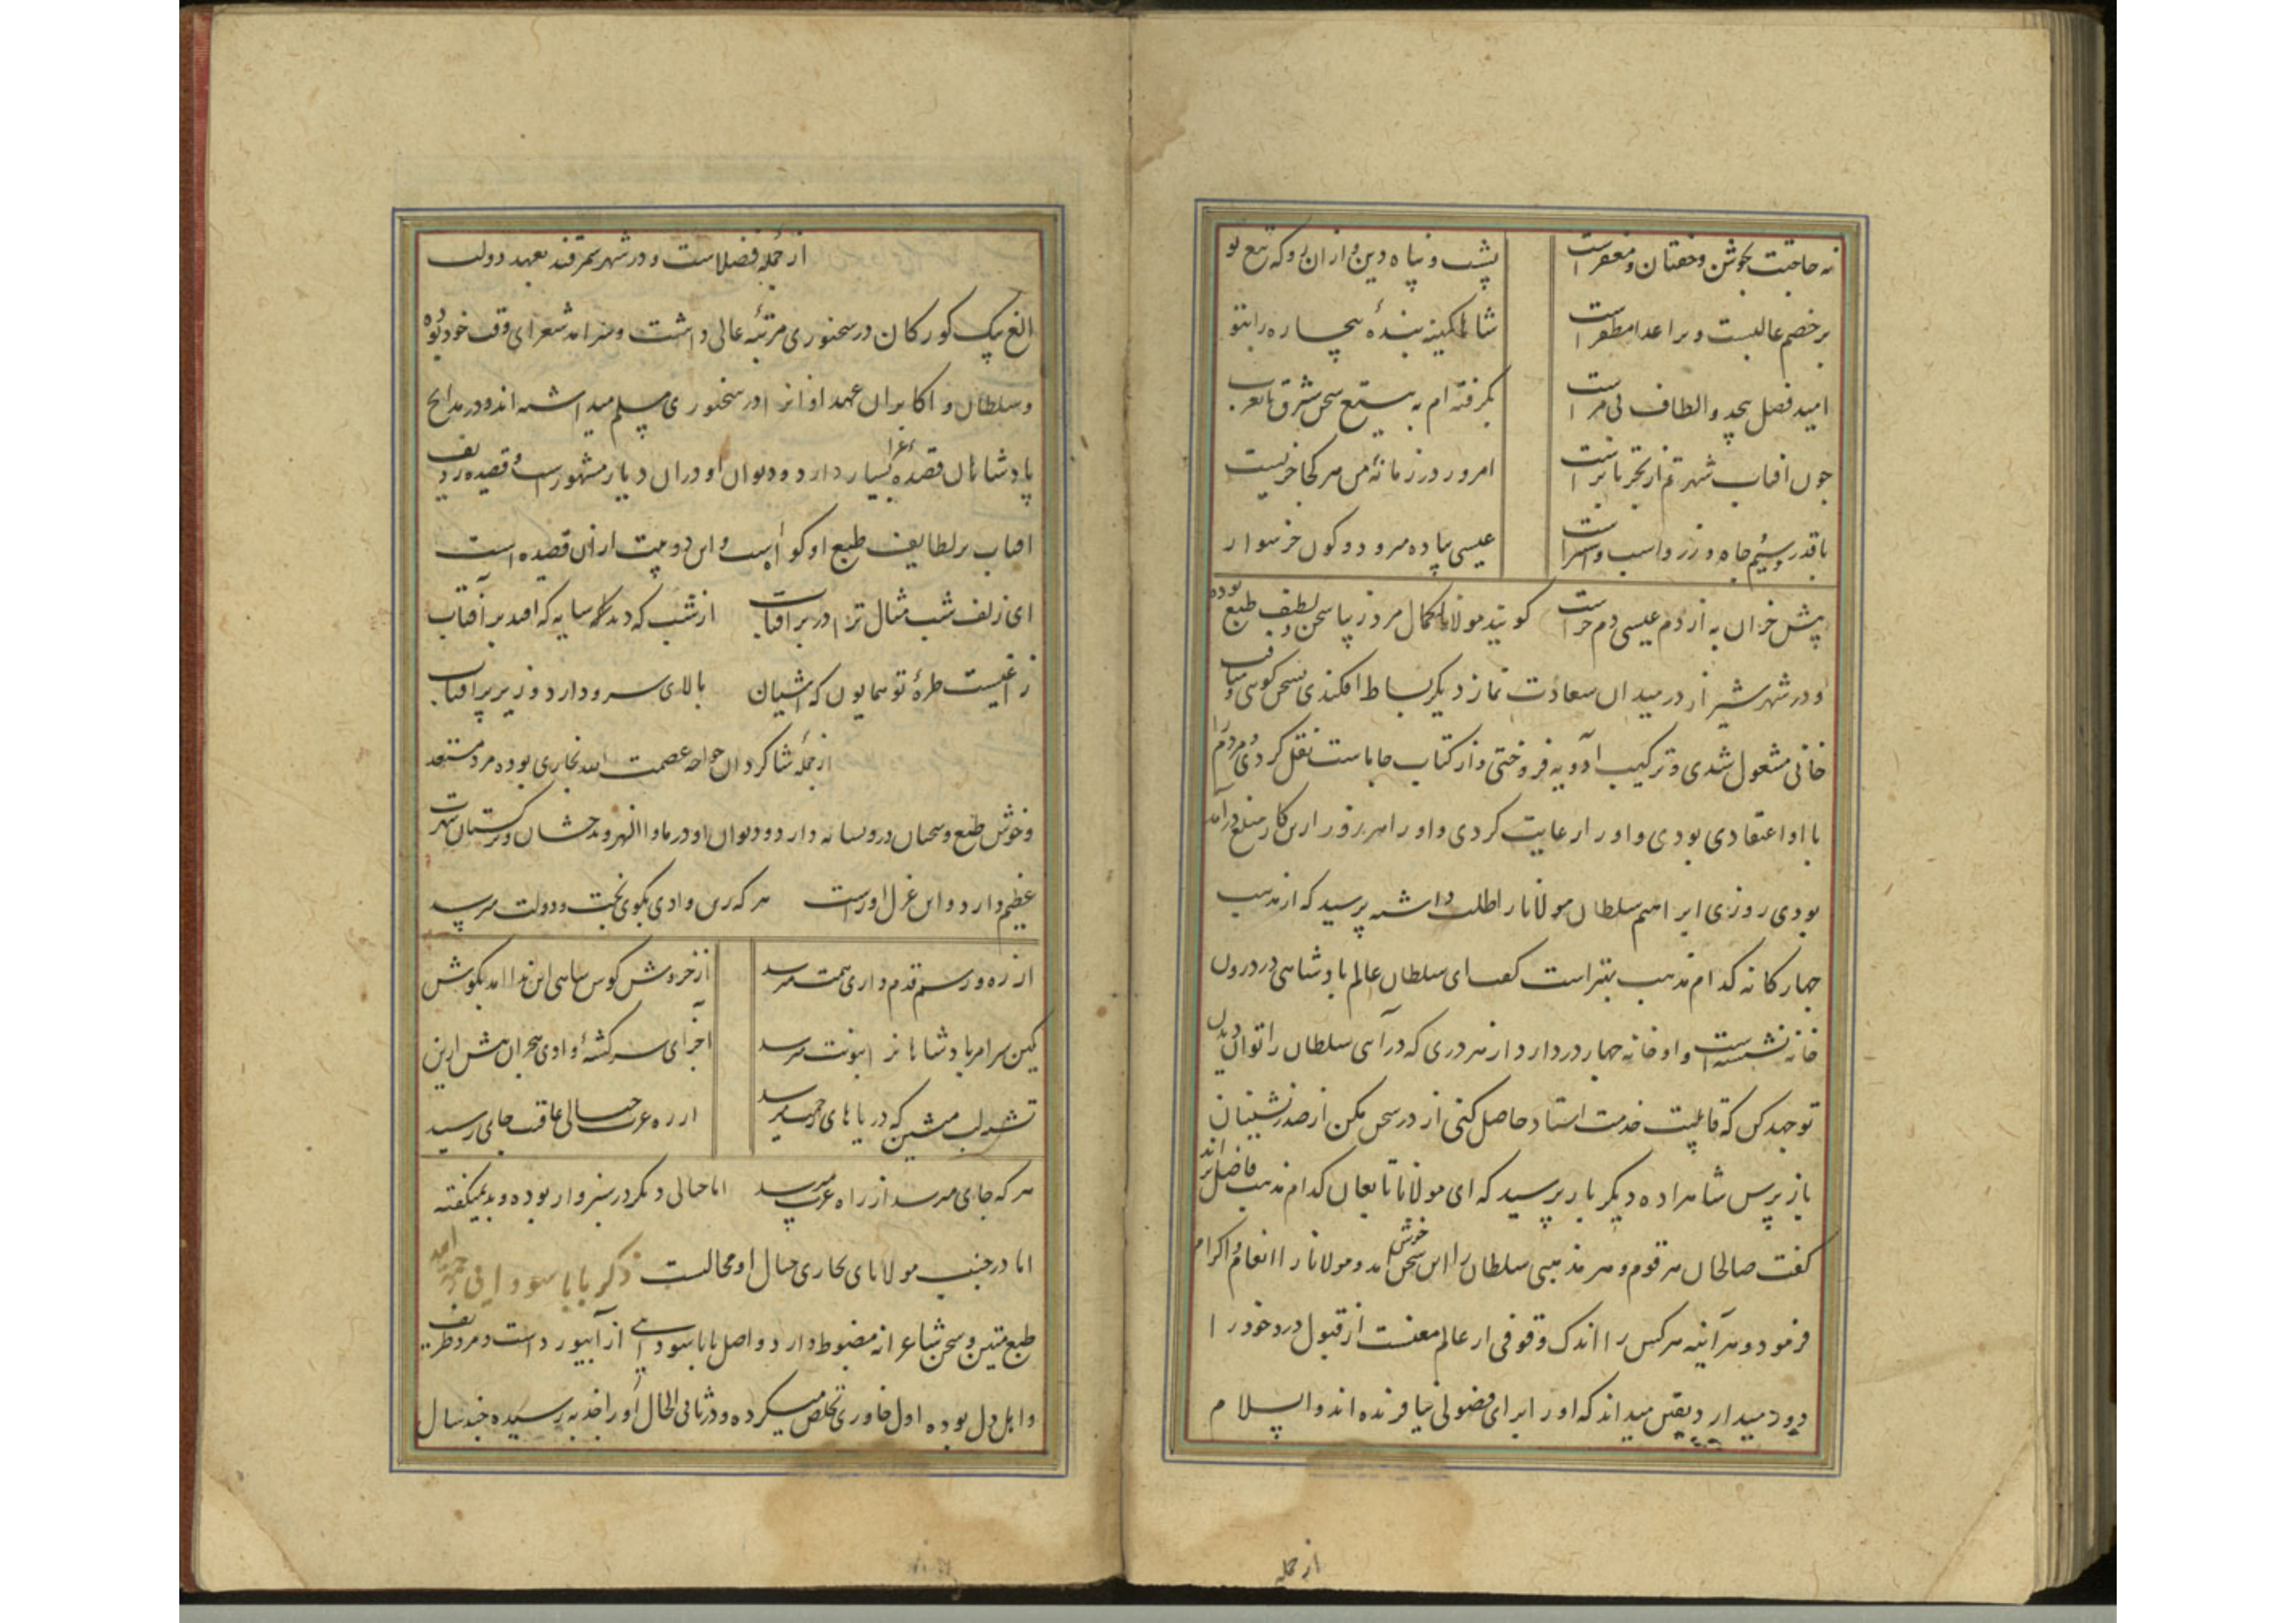 نه حاجتت بجوشن وخفتان ومغفرست پشت و پناه دین از ان رو که تیغ تو
بر خصم غالبست و بر اعدا مظفر است شاها کمینه بندهٔ بیچاره را بتو
امید فضل بیحد و الطاف بی مر است بگرفته ام به تیغ سخن شرق تا بغرب
چون افتاب شهرتم از بحر تا بر است امروز در زمانهٔ من هر کجا خریست
با قدر و سیم و جاه و زر و اسب و استر است عیسی پیاده میرود و کون خر سوار
پیش خران به از دم عیسی دم خر است کویند مولانا کمال مرد زیبا سخن و لطیف طبع بوده
و در شهر شیراز در میدان سعادت نماز دیکر بساط افکندی بسخن کویی و مناقب
خانی مشغول شدی و ترکیب ادویه فروختی و از کتاب جاماست نقل کردی و مردم
با او اعتقادی بودی و او را رعایت کردی و او را هر روز از این کار مبلغ درآمد
بودی روزی ابراهیم سلطان مولانا را طلب داشته پرسید که از مذهب
چهار کانه کدام مذهب بهتر است کفت ای سلطان عالم پادشاهی در درون
خانه نشسته است و او خانه چهار در دارد از هر دری که درآیی سلطان را توان دید
تو جهد کن که قابلیت خدمت استاد حاصل کنی از در سخن مکن از صدر نشینان
باز پرس شاهزاده دیکر بار پرسید که ای مولانا تابعان کدام مذهب فاضل تر اند
کفت صالحان هر قوم و هر مذهبی سلطان را این سخن خوش امد و مولانا را انعام و اکرام
فرمود و هر آینه هر کس را اندک وقوفی از عالم معنیست از قبول و رد خود را
دور میدارد و یقین میداند که او را برای فضولی نیافریده اند والسلام
از جمله
از جملهٔ فضلاست و در شهر سمرقند بعهد دولت
الغ بیک کورکان در سخنوری مرتبهٔ عالی داشت و سرآمد شعرای وقت خود بوده
و سلطان و اکابر ان عهد او را در سخنوری مسلم میداشته اند و در مدایح
پادشاهان قصیدهٔ غرا بسیار دارد و دیوان او دران دیار مشهور است و قصیده ردیف
افتاب بر لطایف طبع او کواه است و این دو بیت از ان قصیده است
ای زلف شب مثال ترا در بر افتاب از شب که دید که سایه که افتد بر آفتاب
زاغیست طرهٔ تو همایون که آشیان بالای سرو دارد و زیر پر افتاب
از جملهٔ شاکردان خواجه عصمت الله بخاری بوده مرد مستعد
و خوش طبع و سخنان درویشانه دارد و دیوان او در ماوراالنهر و بدخشان و ترکستان شهرت
عظیم دارد و این غزل اوراست هر که زین وادی بکوی بخت و دولت میرسد
از ره و رسم قدم داری همت میرسد از خروش کوس شاهی این ندا امد بکوش
کین سرا مر پادشاهانرا بنوبت میرسد آخر ای سرکشتهٔ وادی هجران بیش ازین
تشنه لب منشین که دریاهای رحمت میرسد از ره غربت خیالی عاقبت جای رسید
هر که جای میرسد از راه غربت میرسد اما خیالی دیکر در سبزوار بوده و بد نمیکفته
اما در جنب مولانای بخاری خیال او محالست ذکر بابا سودایی
طبع متین و سخن شاعرانه مضبوط دارد و اصل بابا سودایی از آبیورد است و مرد ظریف
و اهل دل بوده اول خاوری تخلص میکرده و در ثانی الحال او را جذبه رسیده چند سال